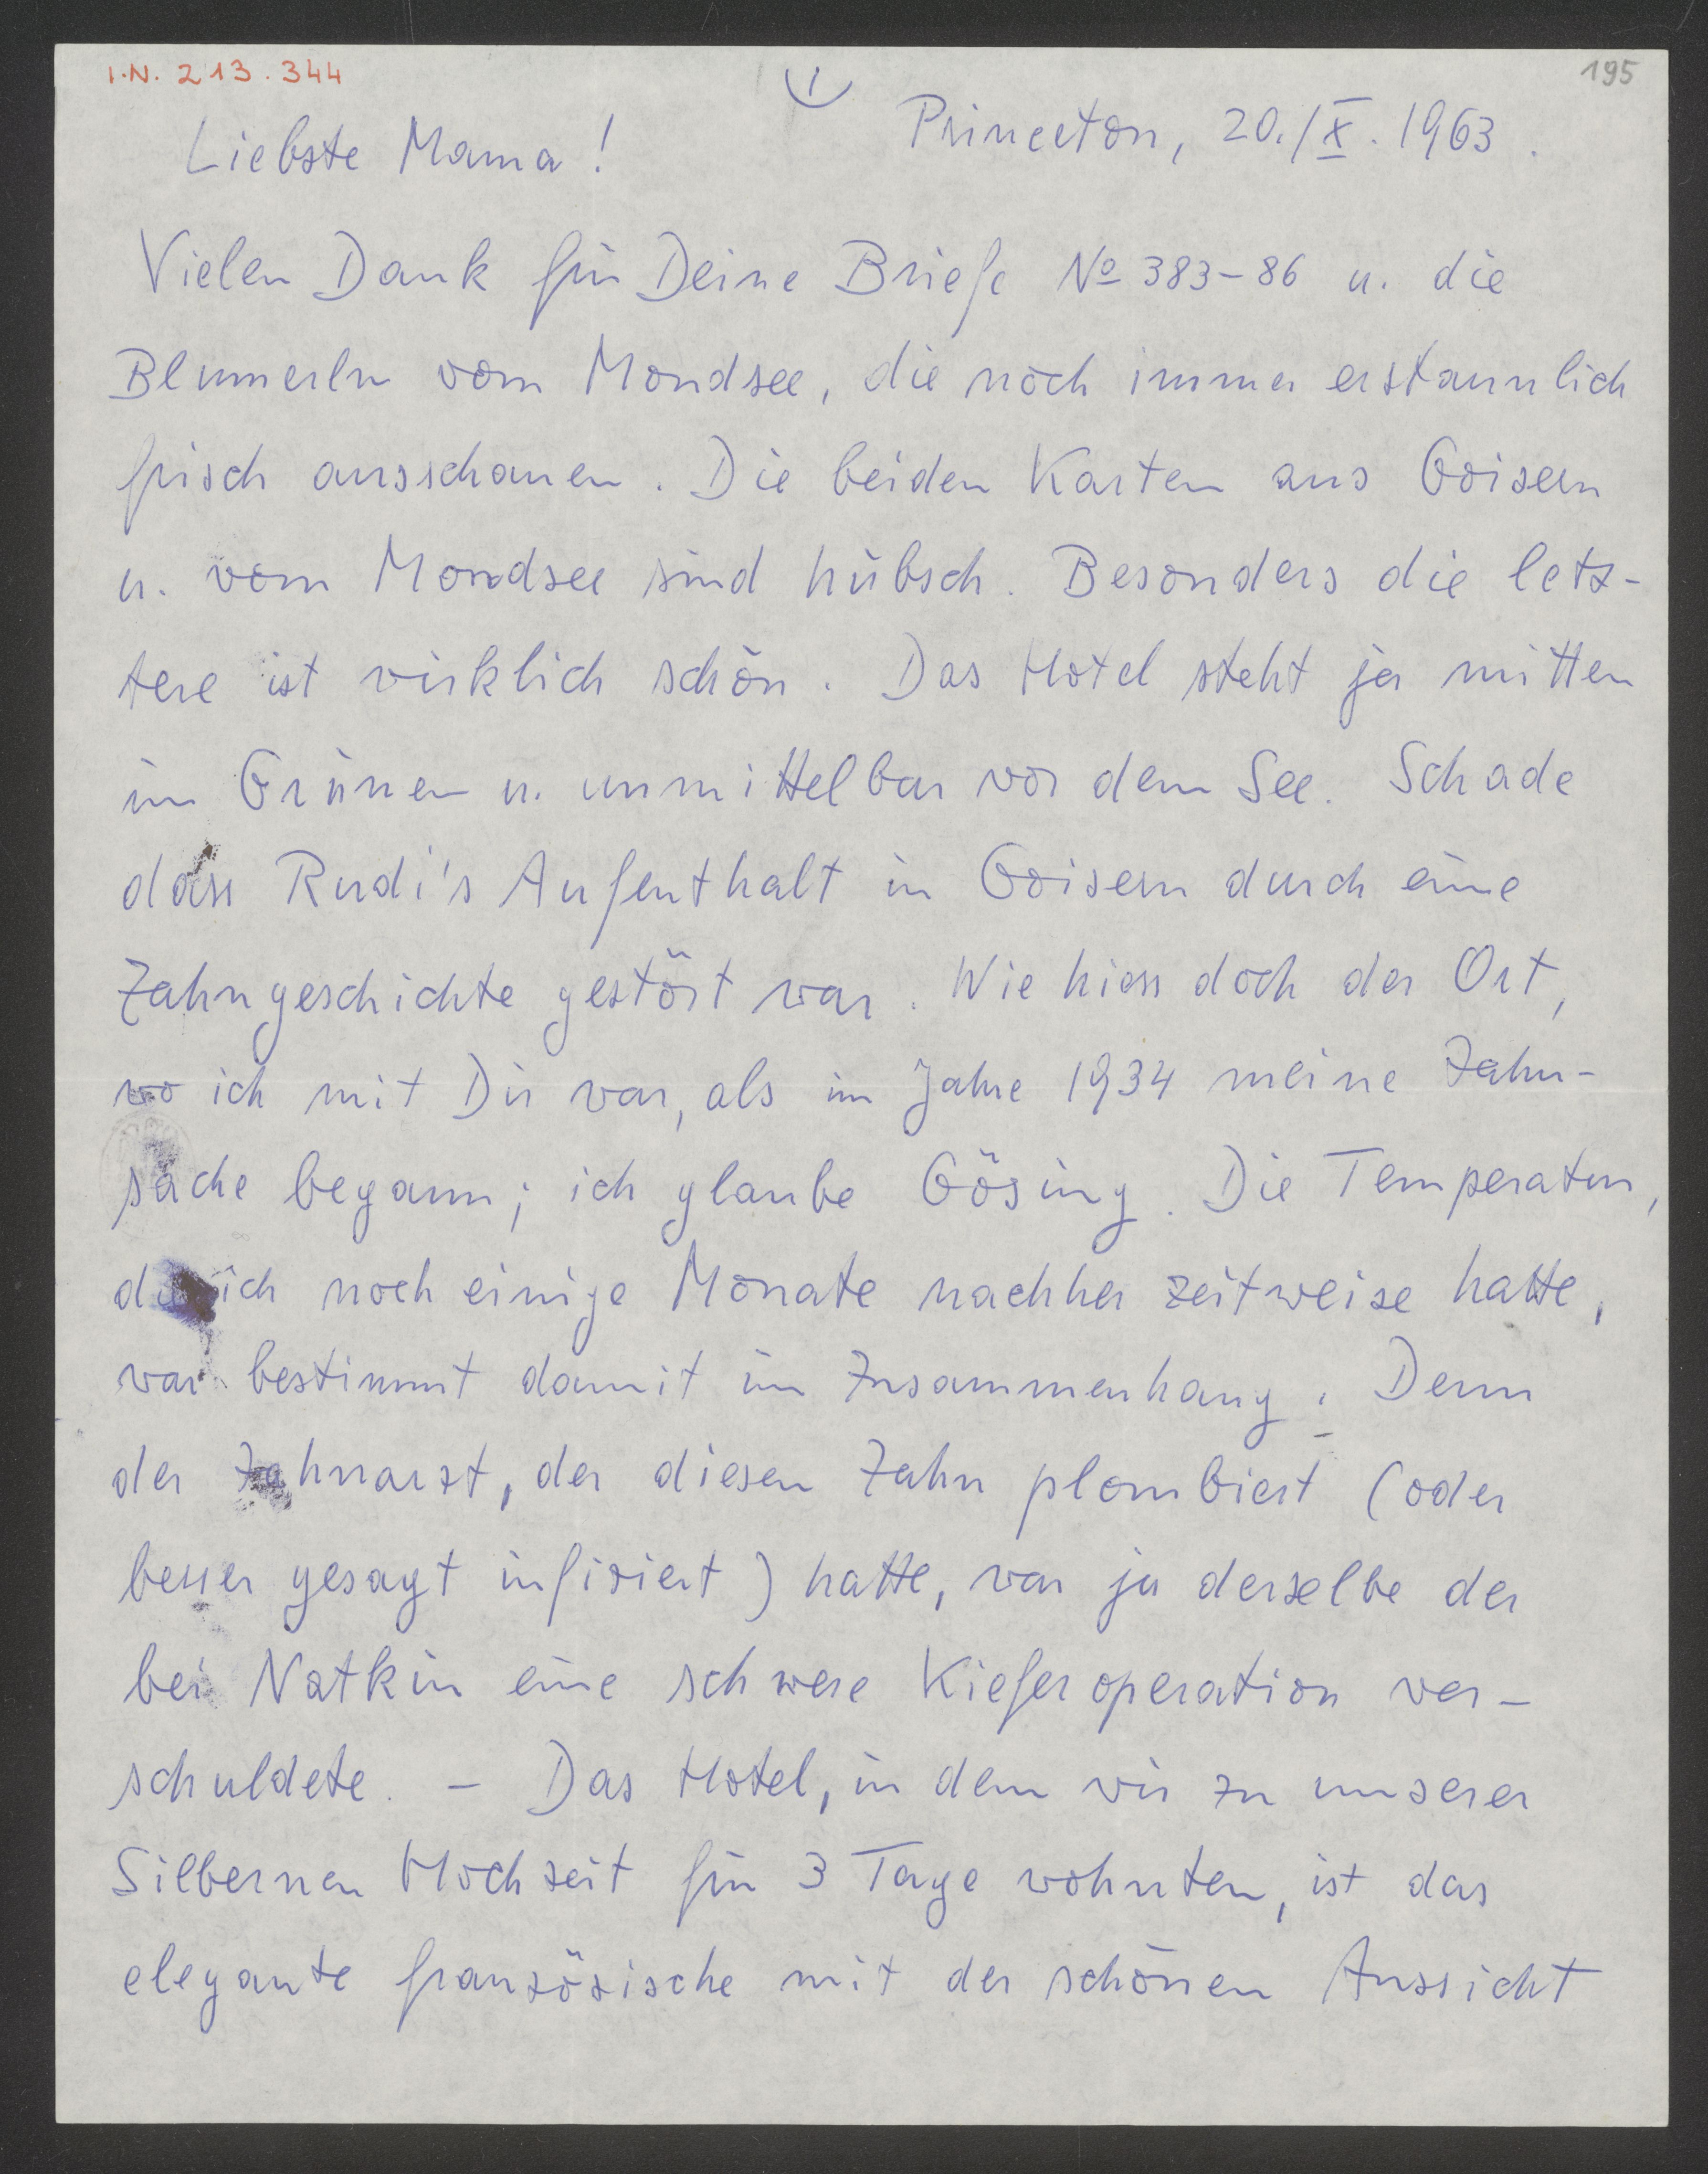 I.N. 213.344
1
195
Princeton, 20./X. 1963.
Liebste Mama!
Vielen Dank für Deine Briefe No 383–86 u. die
Blumerln vom Mondsee, die noch immer erstaunlich
frisch ausschauen. Die beiden Karten aus Goisern
u. vom Mondsee sind hübsch. Besonders die letz-
tere ist wirklich schön. Das Hotel steht ja mitten
im Grünen u. unmittelbar vor dem See. Schade
dass Rudi's Aufenthalt in Goisern durch eine
Zahngeschichte gestört war. Wie hiess doch der Ort,
wo ich mit Dir war, als im Jahre 1934 meine Zahn-
sache begann; ich glaube Gösing. Die Temperatur,
ich noch einige Monate nachher zeitweise hatte,
war bestimmt damit im Zusammenhang. Denn
der Zahnarzt, der diesen Zahn plombiert (oder
besser gesagt infiziert) hatte, war ja derselbe der
bei Natkin eine schwere Kieferoperation ver-
schuldete. – Das Hotel, in dem wir zu unserer
Silbernen Hochzeit für 3 Tage wohnten, ist das
elegante französische mit der schönen Aussicht